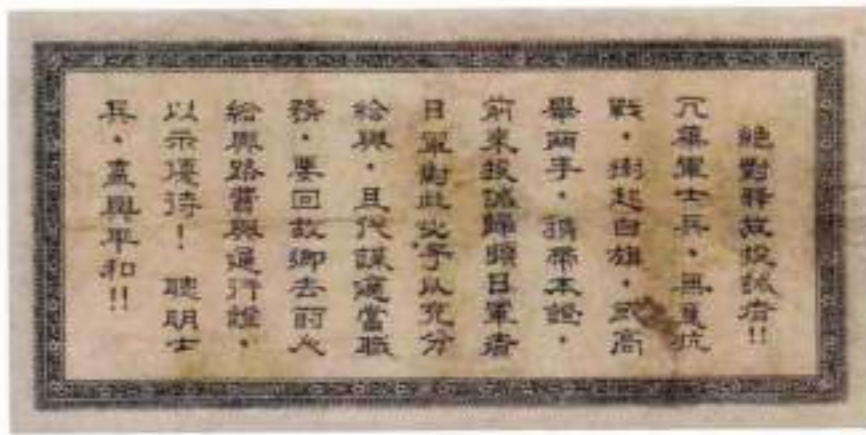 絶對釋放投誠者!!
凡華軍士兵・無意抗
戰・樹起白旗・或高
舉兩手・携帶本證・
前來投誠歸順日軍者
日軍對此必予以充分
給與・且代謀適當職
務・要回故鄉去的人
給與路費與通行證・
以示優待! 聰明士
兵・盍興平和!!